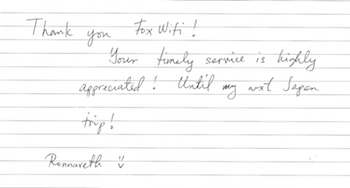 Thank you Fox Wifi!
Your timely service is highly
appreciated! Until my nxt Japan
trip!
Ronnareth